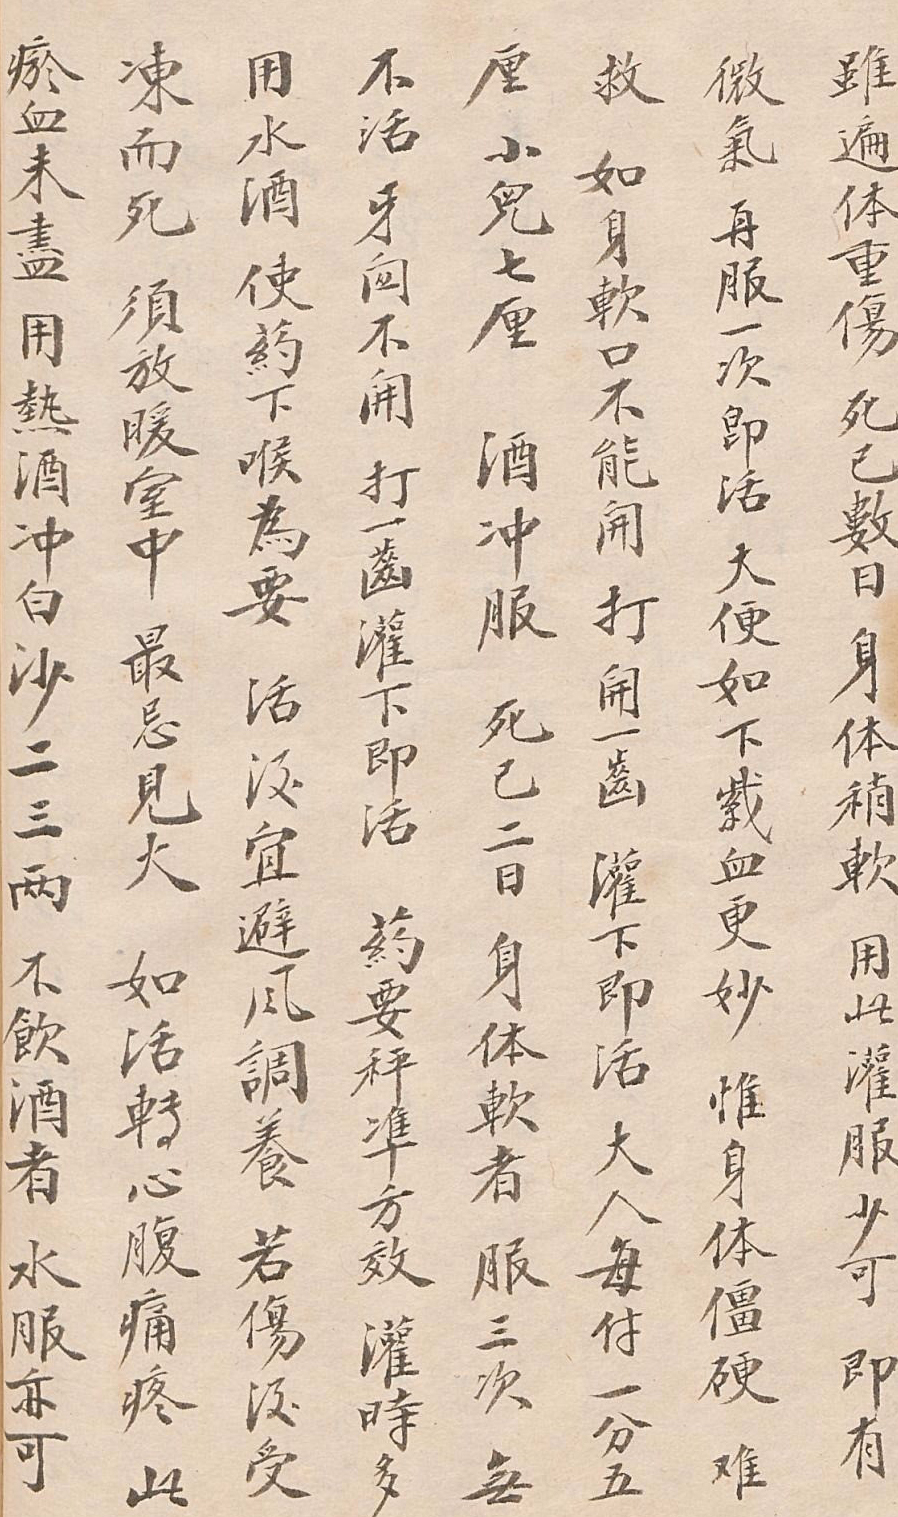 雖遍体重傷 死已數日 身体稍軟 用此灌服少可 即有
微氣 再服一次即活 大便如下紫血更妙 惟身体僵硬 难
救 如身軟口不能開 打開一齒 灌下即活 大人每付一分五
厘 小兒七厘 酒冲服 死已二日 身体軟者 服三次 無
不活 牙関不開 打一齒灌下即活 药要秤準方效 灌時多
用水酒 使药下喉為要 活後宜避风調養 若傷後受
凍而死 須放暖室中 最忌見火 如活轉心腹痛疼 此
瘀血未盡 用熱酒冲白沙二三両 不飲酒者 水服亦可